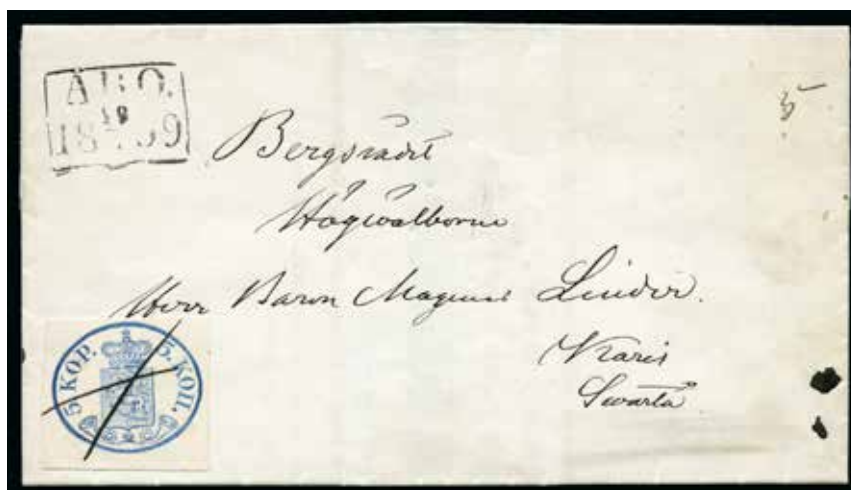 ÅBO.
18 59
5
Bergsrådet
Högvälborne
Herr Baron Magnus Linder.
Karis
Svartå
5 KOP. 5. КОП.